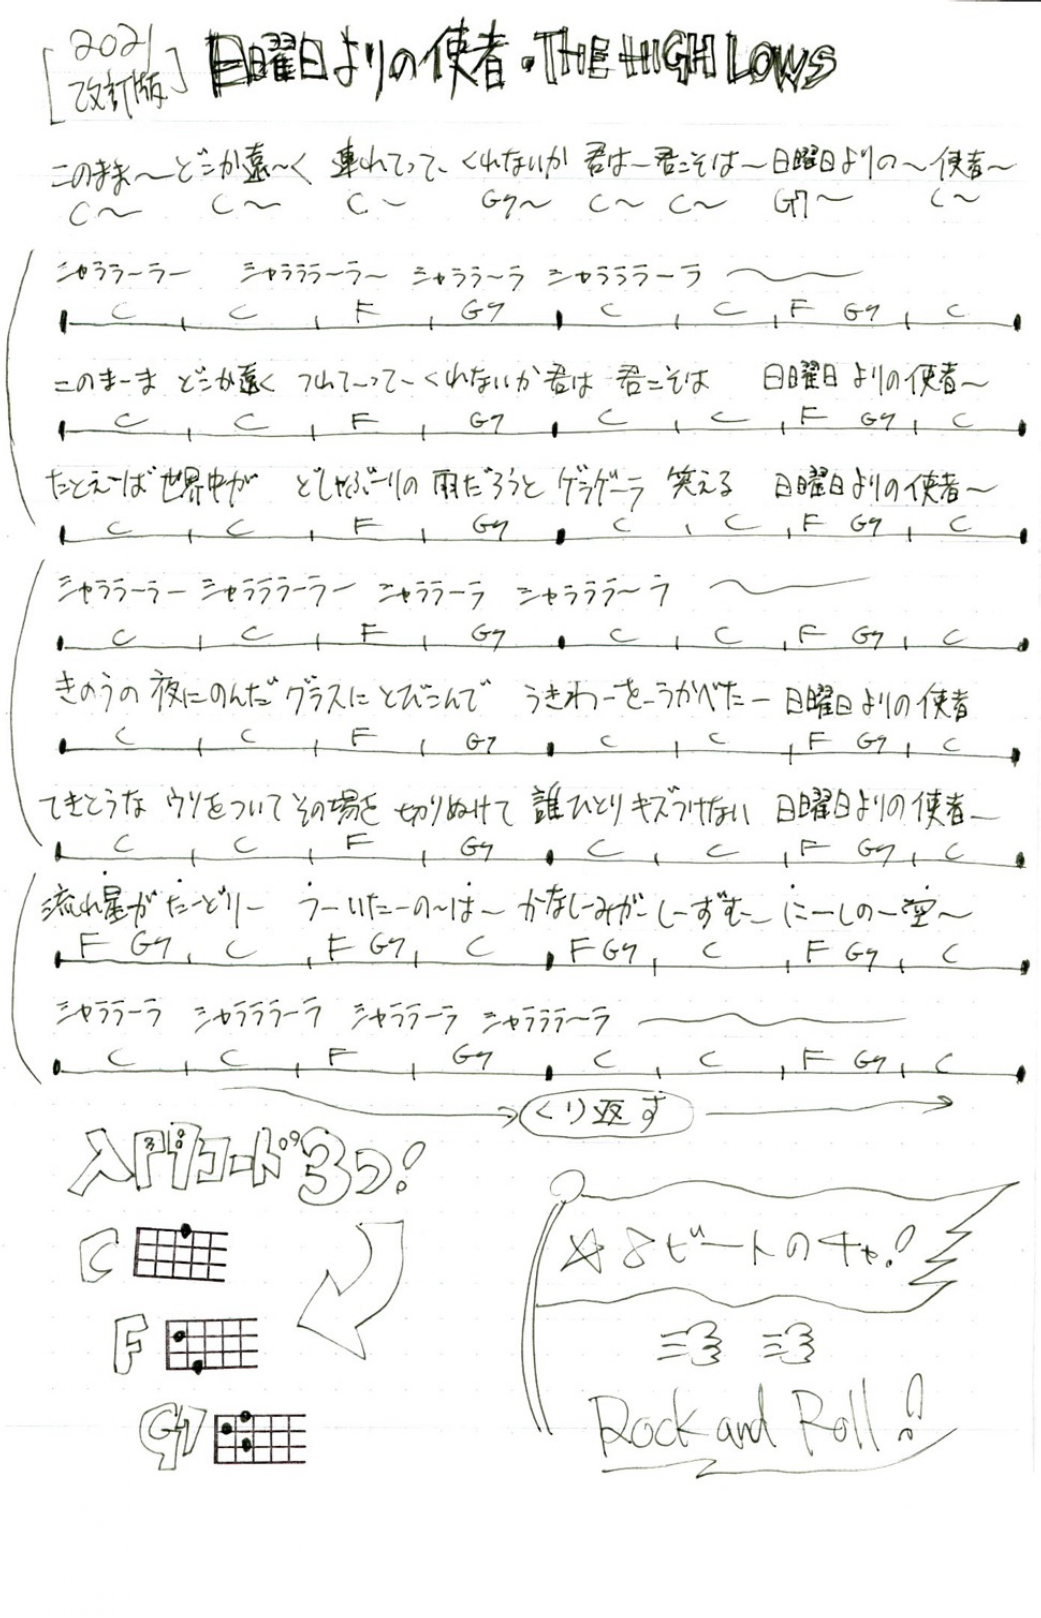 [2021
改訂版] 日曜日よりの使者・THE HIGH LOWS
このまま〜どこか遠〜く 連れてって〜くれないか 君は〜君こそは〜日曜日よりの〜使者〜
C〜 C〜 C〜 G7〜 C〜 C〜 G7〜 C〜
シャラララーラー シャララララーラ〜 シャララ〜ラ シャラララーラ 〜
C C F G7 C C F G7 C
このまーま どこか遠く つれてーってーくれないか 君は 君こそは 日曜日よりの使者〜
C C F G7 C C F G7 C
たとえーば世界中が どしゃぶーりの雨だろうと ゲラゲーラ 笑える 日曜日よりの使者〜
C C F G7 C C F G7 C
シャララーラー シャラララーラー シャララーラ シャラララ〜ラ 〜
C C F G7 C C F G7 C
きのうの夜にのんだグラスにとびこんで うきわーをーうかべたー日曜日よりの使者
C C F G7 C C F G7 C
てきとうな ウソをついてその場を切りぬけて 誰ひとりキズつけない 日曜日よりの使者〜
C C F G7 C C F G7 C
流れ星がたーどりー うーいたーの〜は〜 かなしーみがーしーずむー にーしの〜空〜
F G7 C F G7 C F G7 C F G7 C
シャララーラ シャラララーラ シャララーラ シャラララ〜ラ 〜
C C F G7 C C F G7 C
くり返す
入門コード3つ!
C
F
G7
☆8ビートのチャ!
Rock and Roll!!